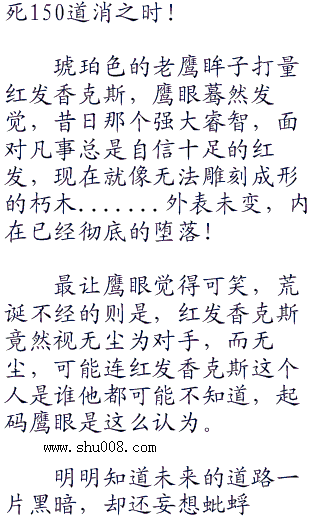 死150道消之时！
琥珀色的老鹰眸子打量
红发香克斯，鹰眼蓦然发
觉，昔日那个强大睿智，面
对凡事总是自信十足的红
发，现在就像无法雕刻成形
的朽木.......外表未变，内
在已经彻底的堕落！
最让鹰眼觉得可笑，荒
诞不经的则是，红发香克斯
竟然视无尘为对手，而无
尘，可能连红发香克斯这个
人是谁他都可能不知道，起
码鹰眼是这么认为。
www.shu008.com
明明知道未来的道路一
片黑暗，却还妄想蚍蜉